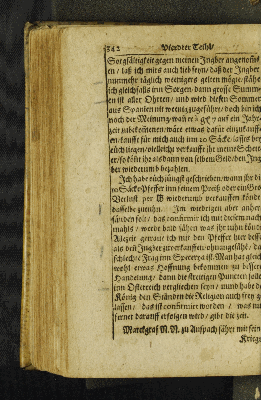 342 Vierdter Theil/
Sorgfältigkeit gegen meinen Ingber angenom̃
en / laß ich mirs auch lieb seyn / daß der Ingber
nunmehr täglich weenigers gelten möge / stehe
ich gleichfalls inn Sorgen / dann grosse Summ-
en ist aller Ohrten / und wird diesen Sommer
aus Spanien nit wenig zugeführt / doch bin ich
noch der Meinung / wañ er à auf ein Jahr
ger zubekommen / wäre etwas dafür einzukauff
en / kauffe für mich auch inn 20 Säcke / lasses bey
euch liegen / vielleicht verkaufft ihr meine Schon
er / so könt ihr als dann von selben Geld den Ing
ber wiederumb bezahlen.
Ich habe euch jüngst geschrieben / wann ihr die
20 Säcke Pfeffer inn seinem Preiß oder ein
Verlust per wiederumb verkauffen könnt
dasselbe zuthun. Im wiedrigen aber anher
führen solt / das confirmir ich mit diesem noch
mahls / werdt bald sähen was ihr zuthun fünd
Allezeit getraue ich mir den Pfeffer hier besser
als den Ingber zuverkauffen / ohnangesehn / da
schlechte Frag inn Specerey ist. Man hat gleich
wohl etwas Hoffnung bekommen zu besserer
Handelung / dann die streitigen Puncten sollen
inn Österreich verglichen seyn / unnd habe der
König den Ständen die Religion auch frey ge
lassen / das ist confirmirt worden / was nu
ferner darauff erfolgen wird / gibt die zeit.
Marckgraf N. N. zu Anspach / fährt mit sein
Kriegs